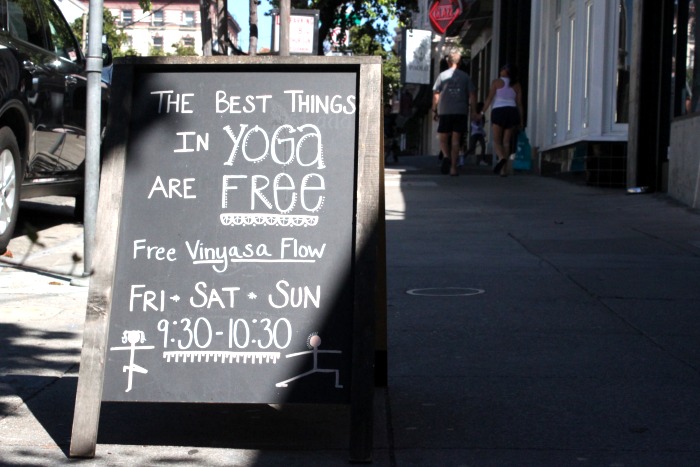 THE BEST THINGS
IN YOGA
ARE FREE
Free Vinyasa Flow
FRI • SAT • SUN
9:30-10:30